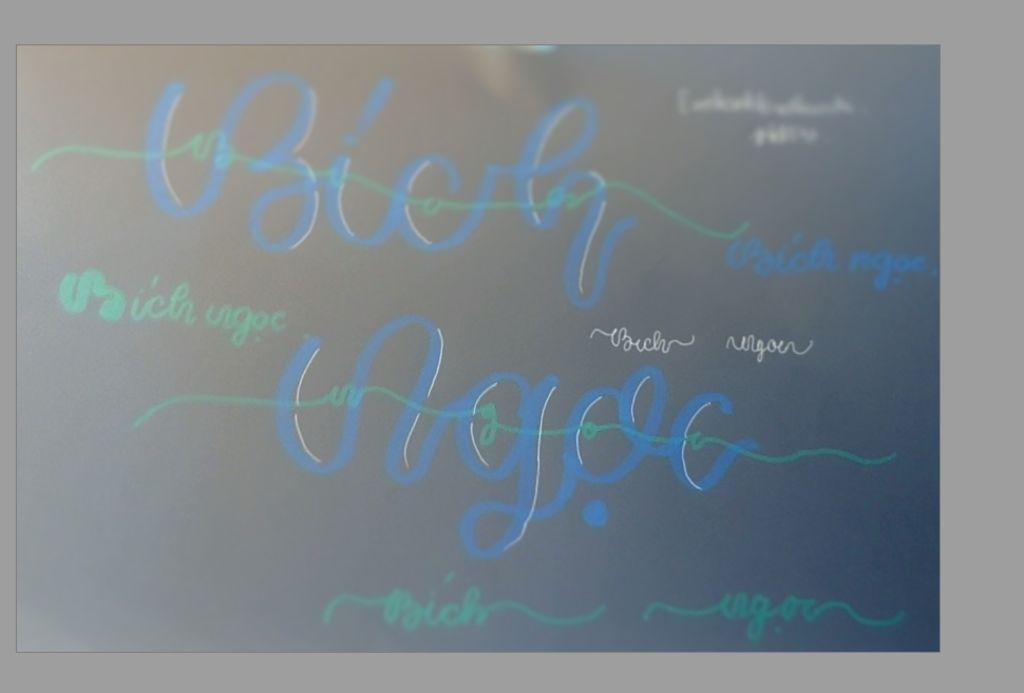 Bích
Bích ngọc.
Bích ngọc
Bích ngọc
Ngọc
Bích ngọc